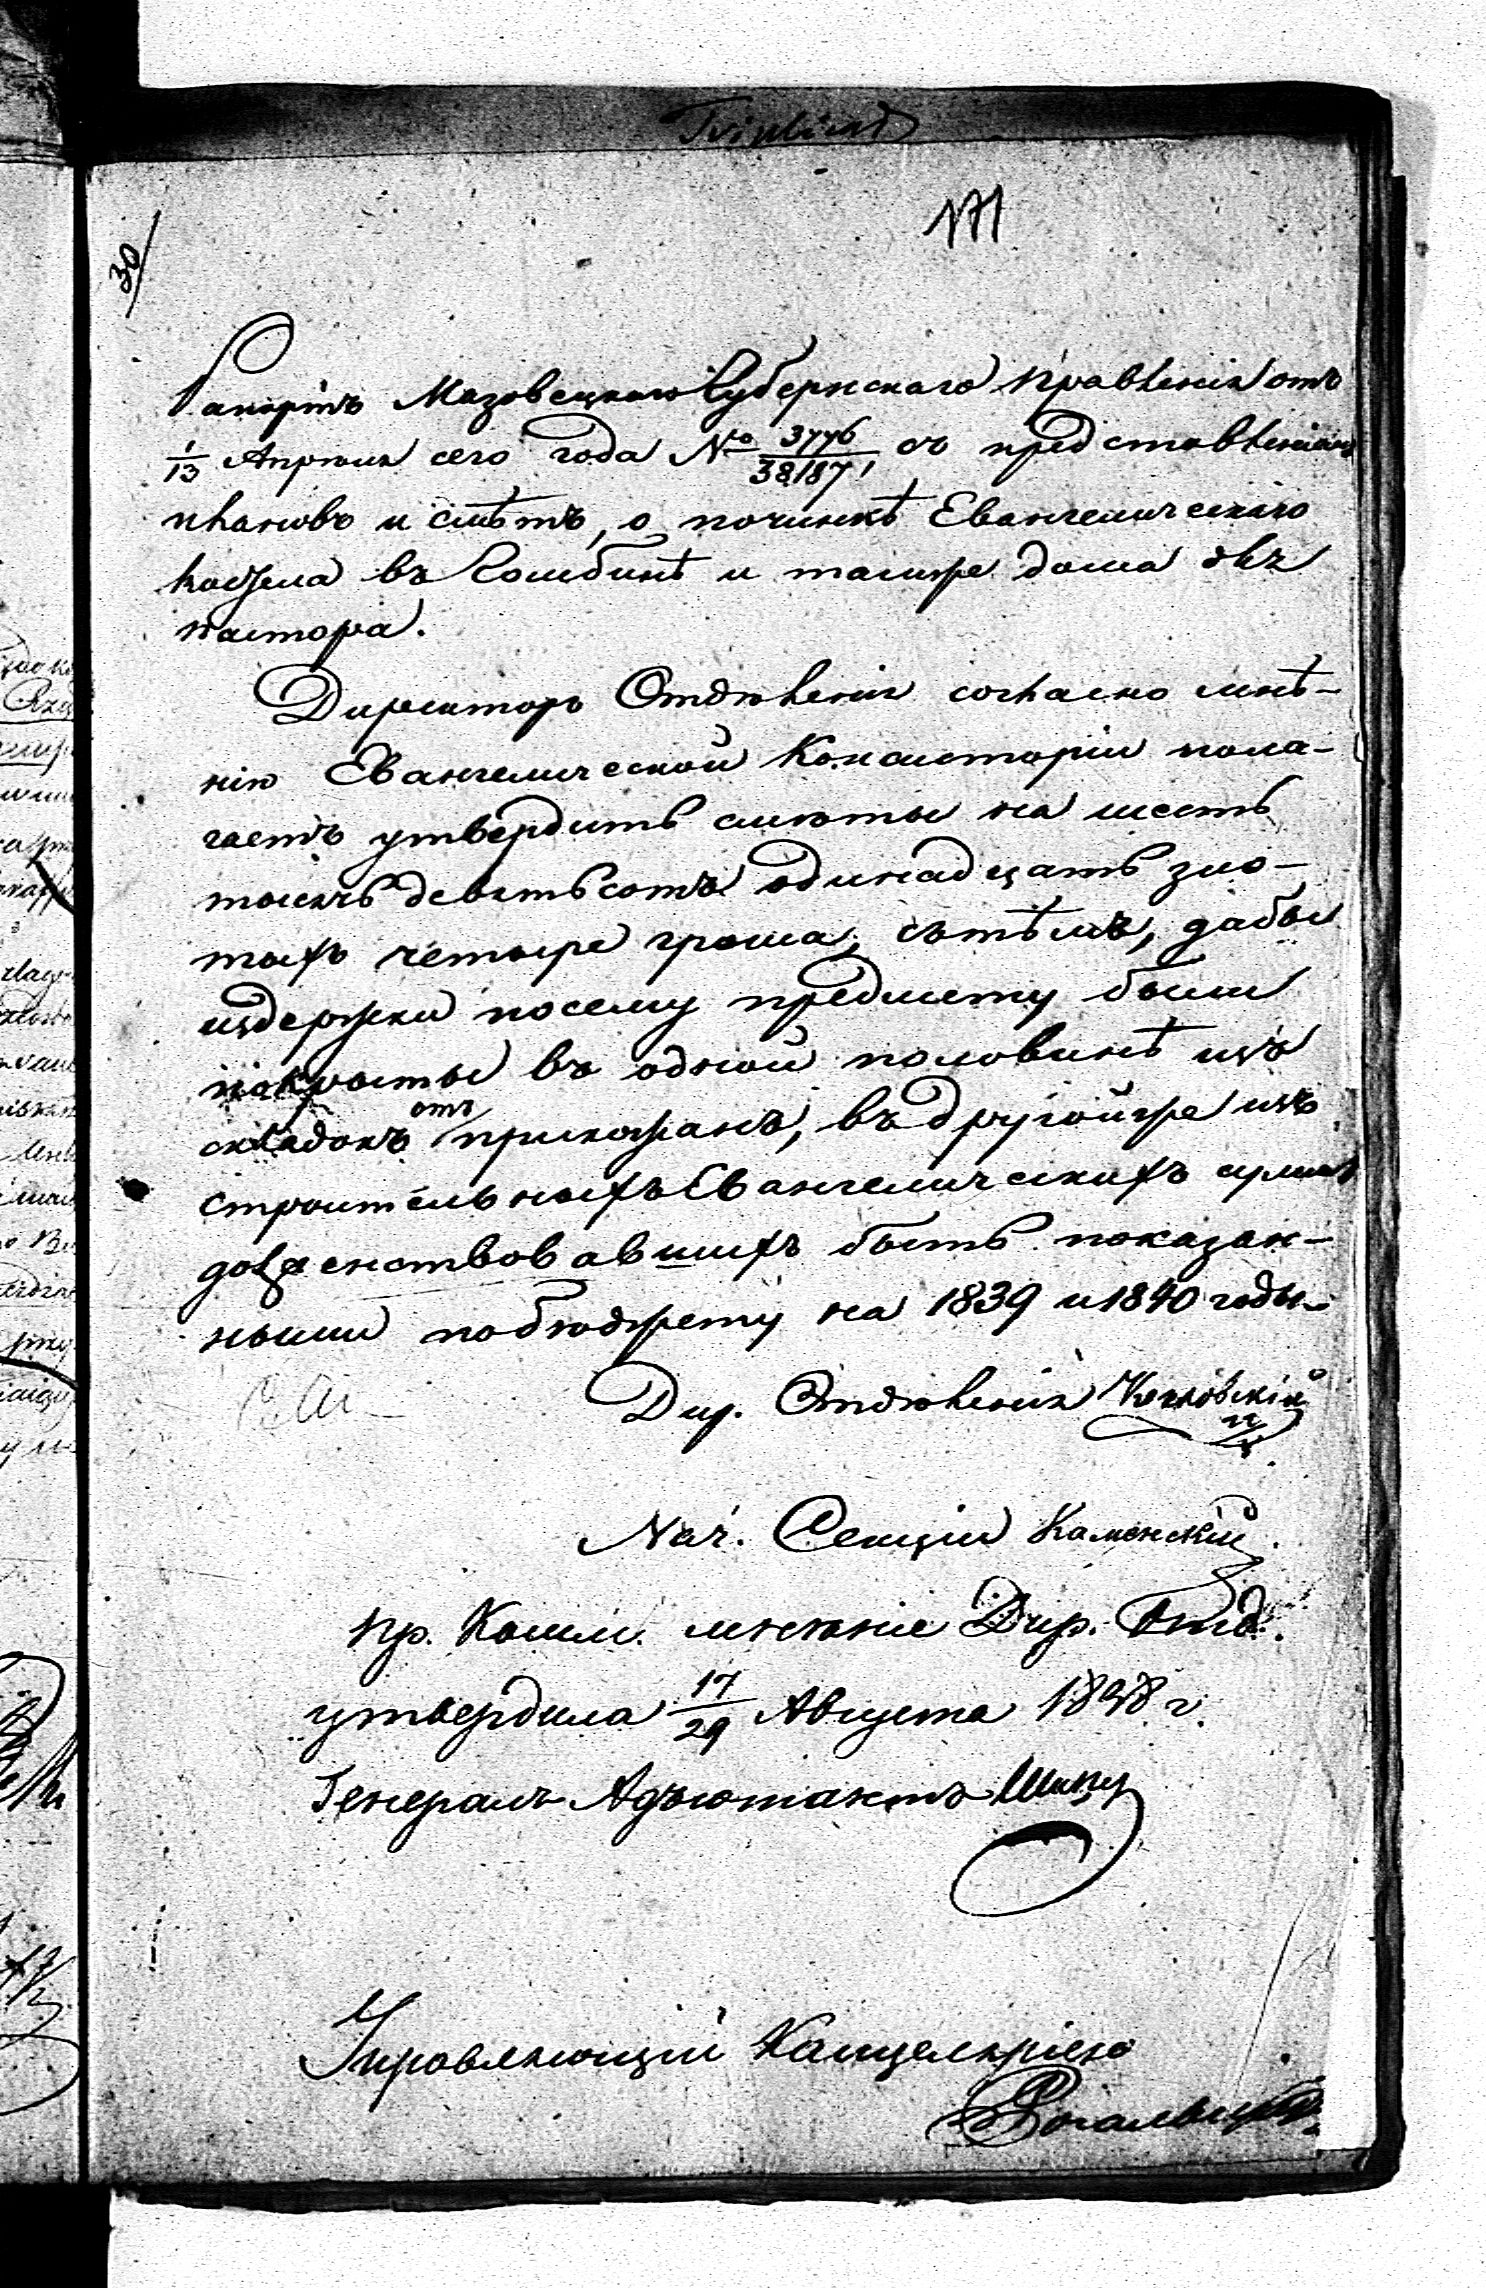 171
30
Рапортъ Мазовецкаго Губернскаго Правленія отъ
1/13 Апрѣля сего года № 3776/38187 съ представленіемъ
плановъ и смѣтъ, о починкѣ Евангелическаго
костела въ Гомбинѣ и тамже дома для
пастора.
Директоръ Отдѣленія согласно мнѣ-
нію Евангелической Консисторіи пола-
гаетъ утвердить смѣты на шесть
тысячь девятьсотъ одинадцать зло-
тыхъ четыре гроша, сътѣмъ, дабы
издержки посему предмету были
покрыты въ одной половинѣ изъ
складокъ отъ прихожанъ, въ другойже изъ
строительныхъ Евангелическихъ суммъ
долженствовавшихъ быть показан-
ными побюджету на 1839 и 1840 годы.
Дир. Отдѣленія
Нач. Секціи Каменскій
Пр. Комм. мнѣніе Дир. Отд.
утвердила 17/29 Августа 1838 г.
Генералъ Адъютантъ Шиповъ
Управляющій Канцеляріею